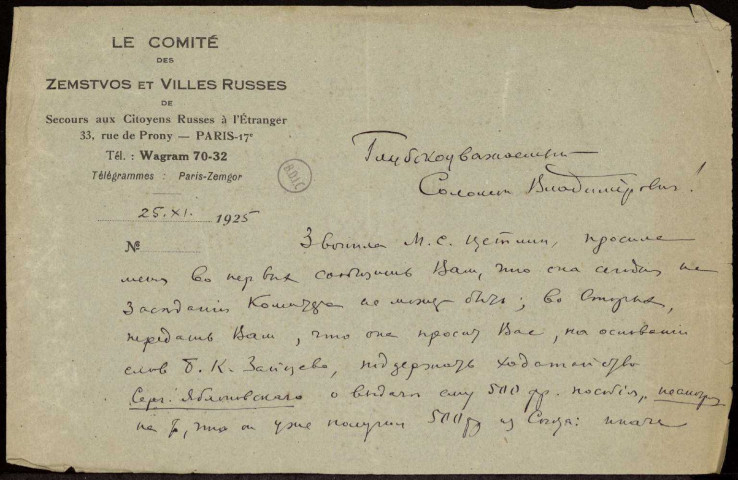 LE COMITÉ
DES
ZEMSTVOS ET VILLES RUSSES
DE
Secours aux Citoyens Russes à l'Étranger
33, rue de Prony — PARIS-17e
Tél. : Wagram 70-32
Télégrammes : Paris-Zemgor
BDIC
25.XI. 1925
№
Глубокоуважаемый
Соломон Владимирович!
Звонила М.С. Цетлин, просила
меня во первых сообщить Вам, что она сегодня на
Заседании Комитета не может быть; во вторых,
передать Вам, что она просит Вас, на основании
слов Б. К. Зайцева, поддержать ходатайство
Серг. Яблоновскаго о выдаче ему 500 фр. пособiя, несмотря
на то, что он уже получил 500 фр из Союза: иначе